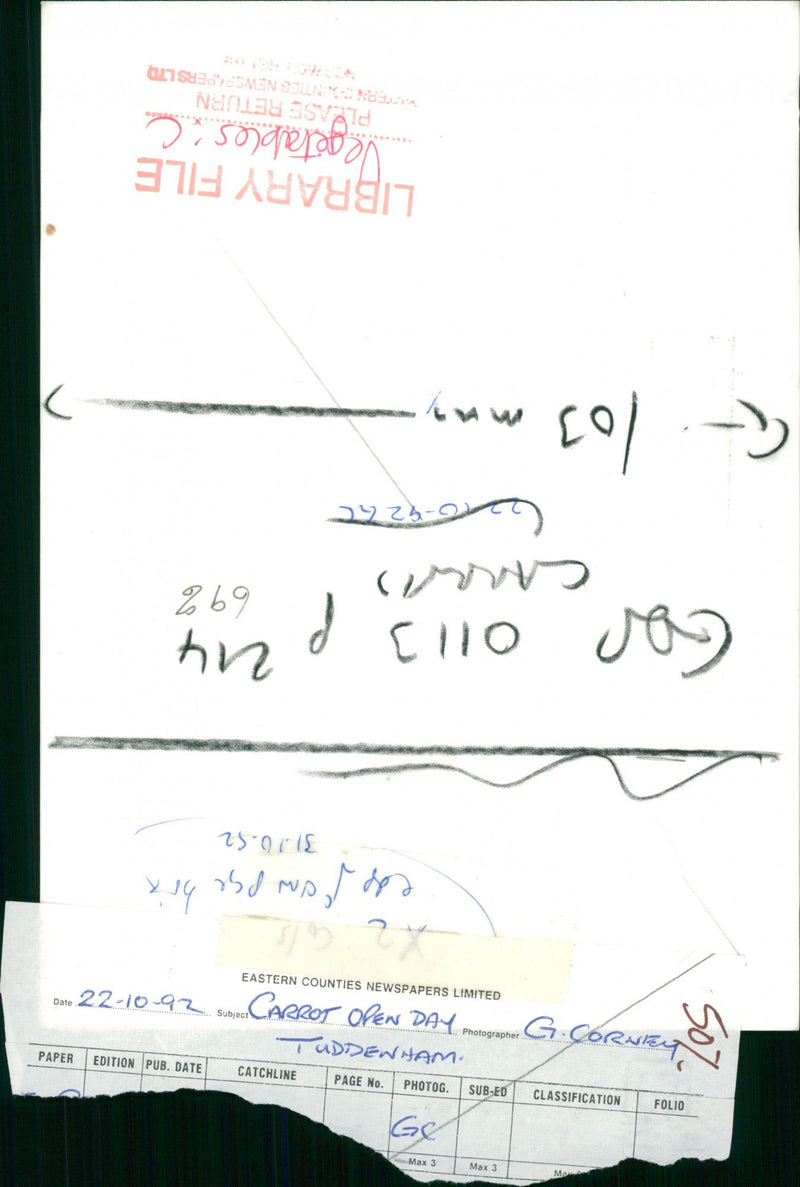 LIBRARY FILE
Vegetables: C
PLEASE RETURN
EASTERN COUNTIES NEWSPAPERS LTD
103 mm
22-10-92 GC
CARROTS
EDP 0113 p 214
698
31-10-92
EDP farm pge
X2
EASTERN COUNTIES NEWSPAPERS LIMITED
Date 22-10-92 Subject CARROT OPEN DAY Photographer G. CORNEY
TUDDENHAM.
50%
PAPER EDITION PUB. DATE CATCHLINE PAGE No. PHOTOG. SUB-ED CLASSIFICATION FOLIO
GC
Max 3 Max 3